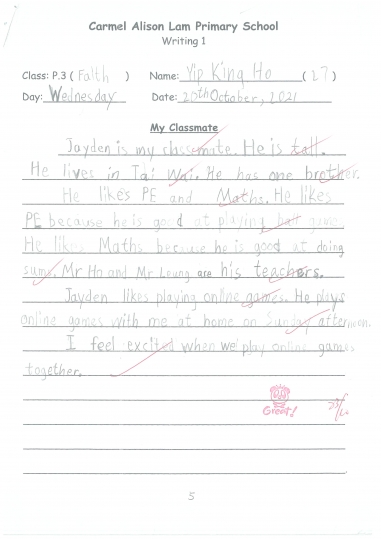 Carmel Alison Lam Primary School
Writing 1
Class: P.3 ( Faith ) Name: Yip King Ho ( 27 )
Day: Wednesday Date: 20th October, 2021
My Classmate
Jayden is my classmate. He is tall.
He lives in Tai Wai. He has one brother.
He likes PE and Maths. He likes
PE because he is good at playing ball game
He likes Maths because he is good at doing
sums. Mr Ho and Mr Leung are his teachers.
Jayden likes playing online games. He plays
online games with me at home on Sunday afternoon.
I feel excited when we play online games
together.
Great!
5